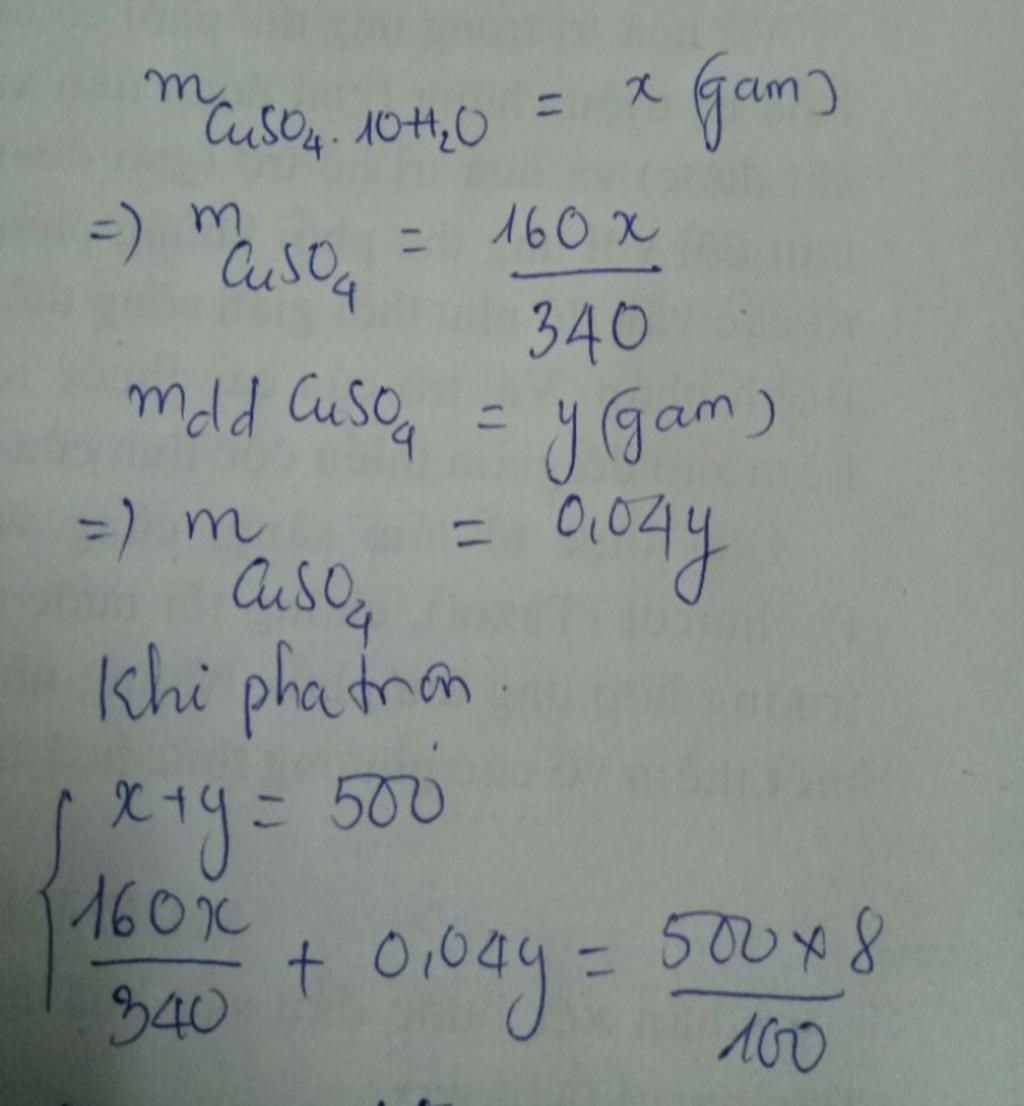 m CuSO₄.10H₂O = x (gam)
=) m CuSO₄ = 160x / 340
mdd CuSO₄ = y (gam)
=) m CuSO₄ = 0,04y
Khi pha trộn
{ x+y = 500
160x / 340 + 0,04y = 500 x 8 / 100